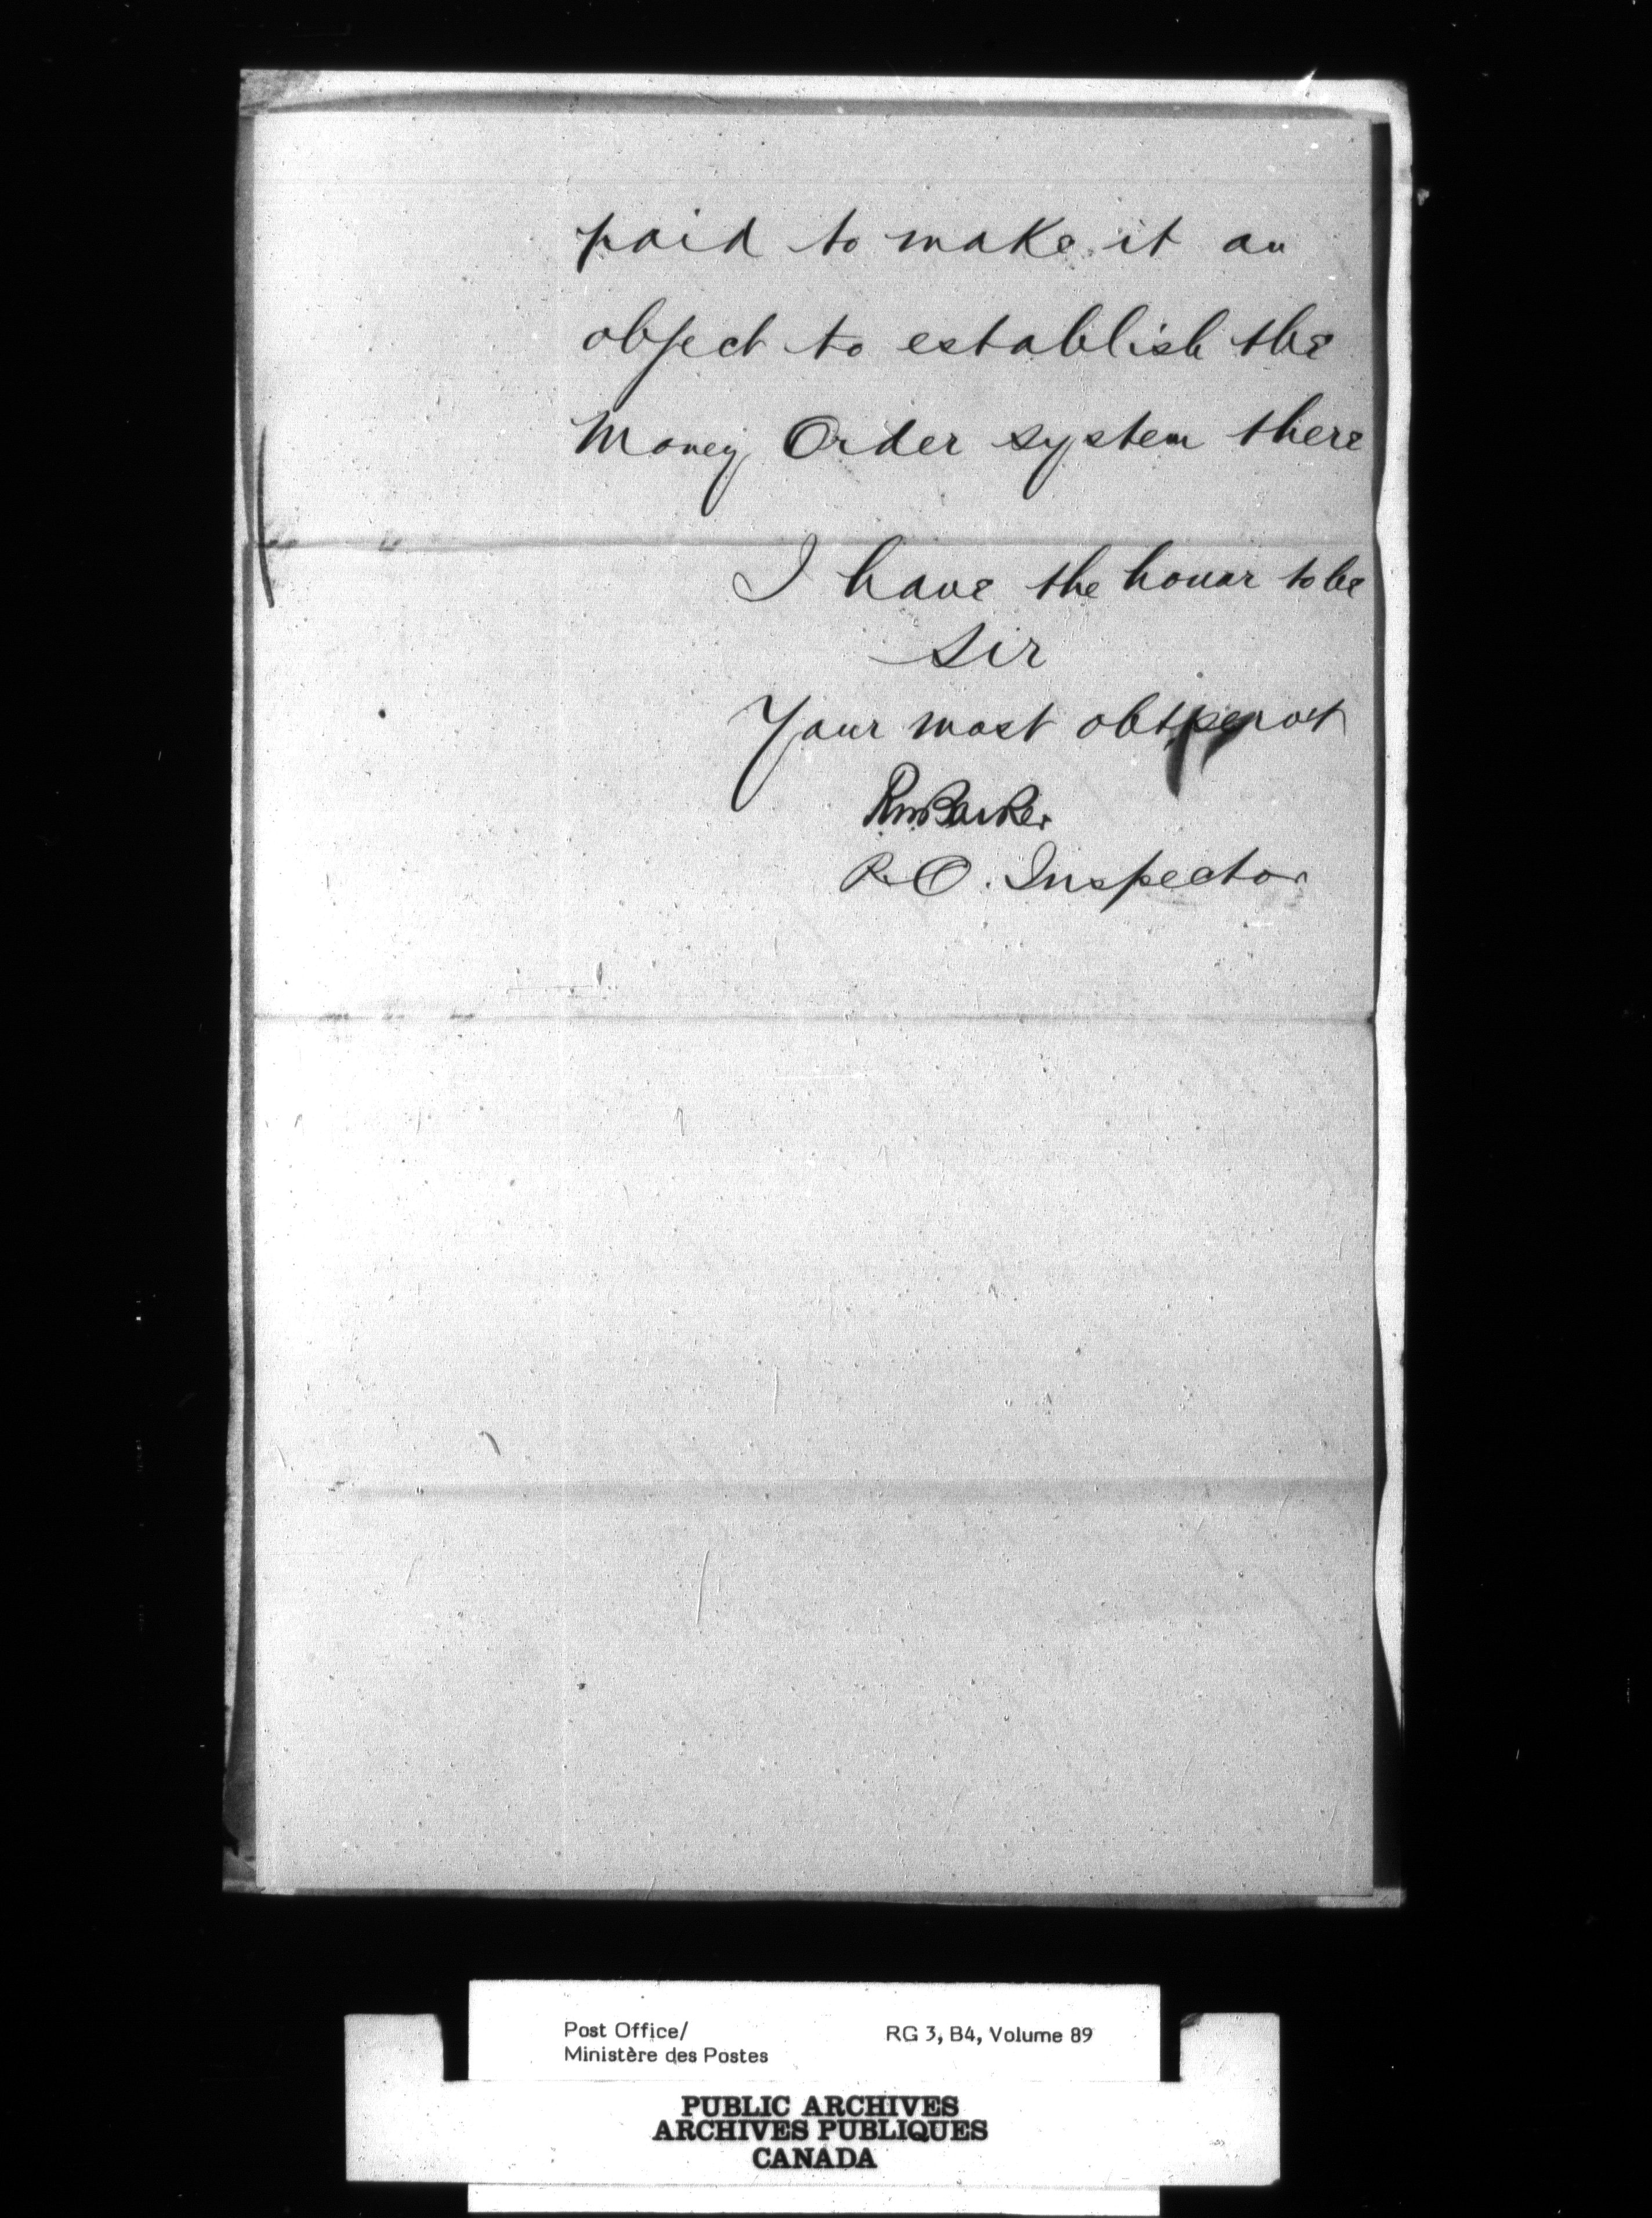 paid to make it an
object to establish the
Money Order system there
I have the honor to be
Sir
Your most obt servt
RWBarker
P.O. Inspector
Post Office/
Ministère des Postes
RG 3, B4, Volume 89
PUBLIC ARCHIVES
ARCHIVES PUBLIQUES
CANADA